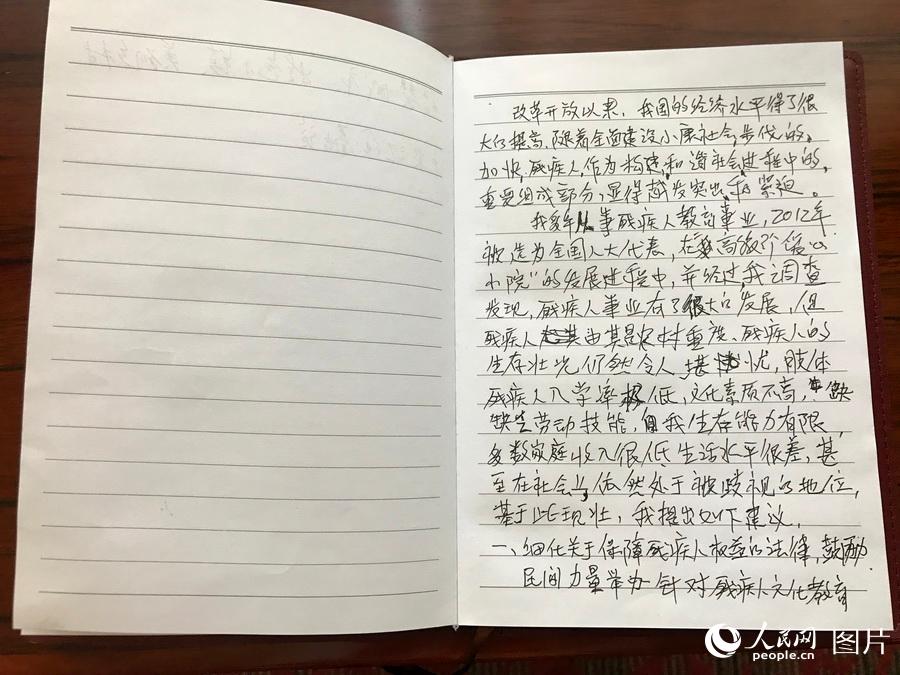 改革开放以来，我国的经济水平得了很
大的提高，随着全面建设小康社会步伐的
加快，残疾人作为构建和谐社会进程中的
重要组成部分，显得越发突出和紧迫。
我多年从事残疾人教育事业，2012年
被选为全国人大代表，在高级阶
小院”的发展进程中，并经过我调查
发现，残疾人事业有了很大的发展，但
残疾人尤其是农村重度残疾人的
生存状况仍然令人堪忧，肢体
残疾人入学率极低，文化素质不高，缺
缺乏劳动技能，自我生存能力有限，
多数家庭收入很低，生活水平很差，甚
至在社会上依然处于被歧视的地位，
基于此现状，我提出如下建议，
一、细化关于保障残疾人权益的法律，鼓励
民间力量举办针对残疾人文化教育
人民网 图片
people.cn